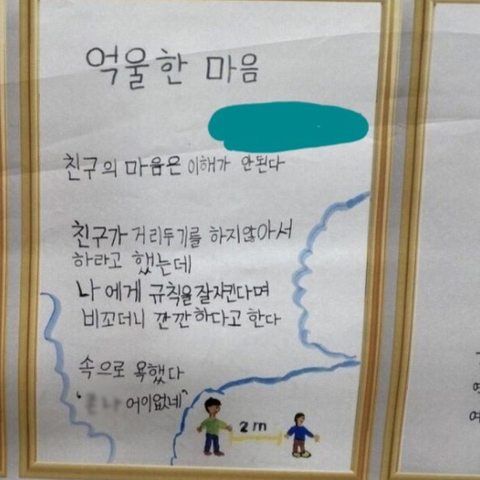 억울한 마음
친구의 마음은 이해가 안된다
친구가 거리두기를 하지않아서
하라고 했는데
나에게 규칙을 잘지킨다며
비꼬더니 깐깐하다고 한다
속으로 욕했다
' 어이없네'
2m